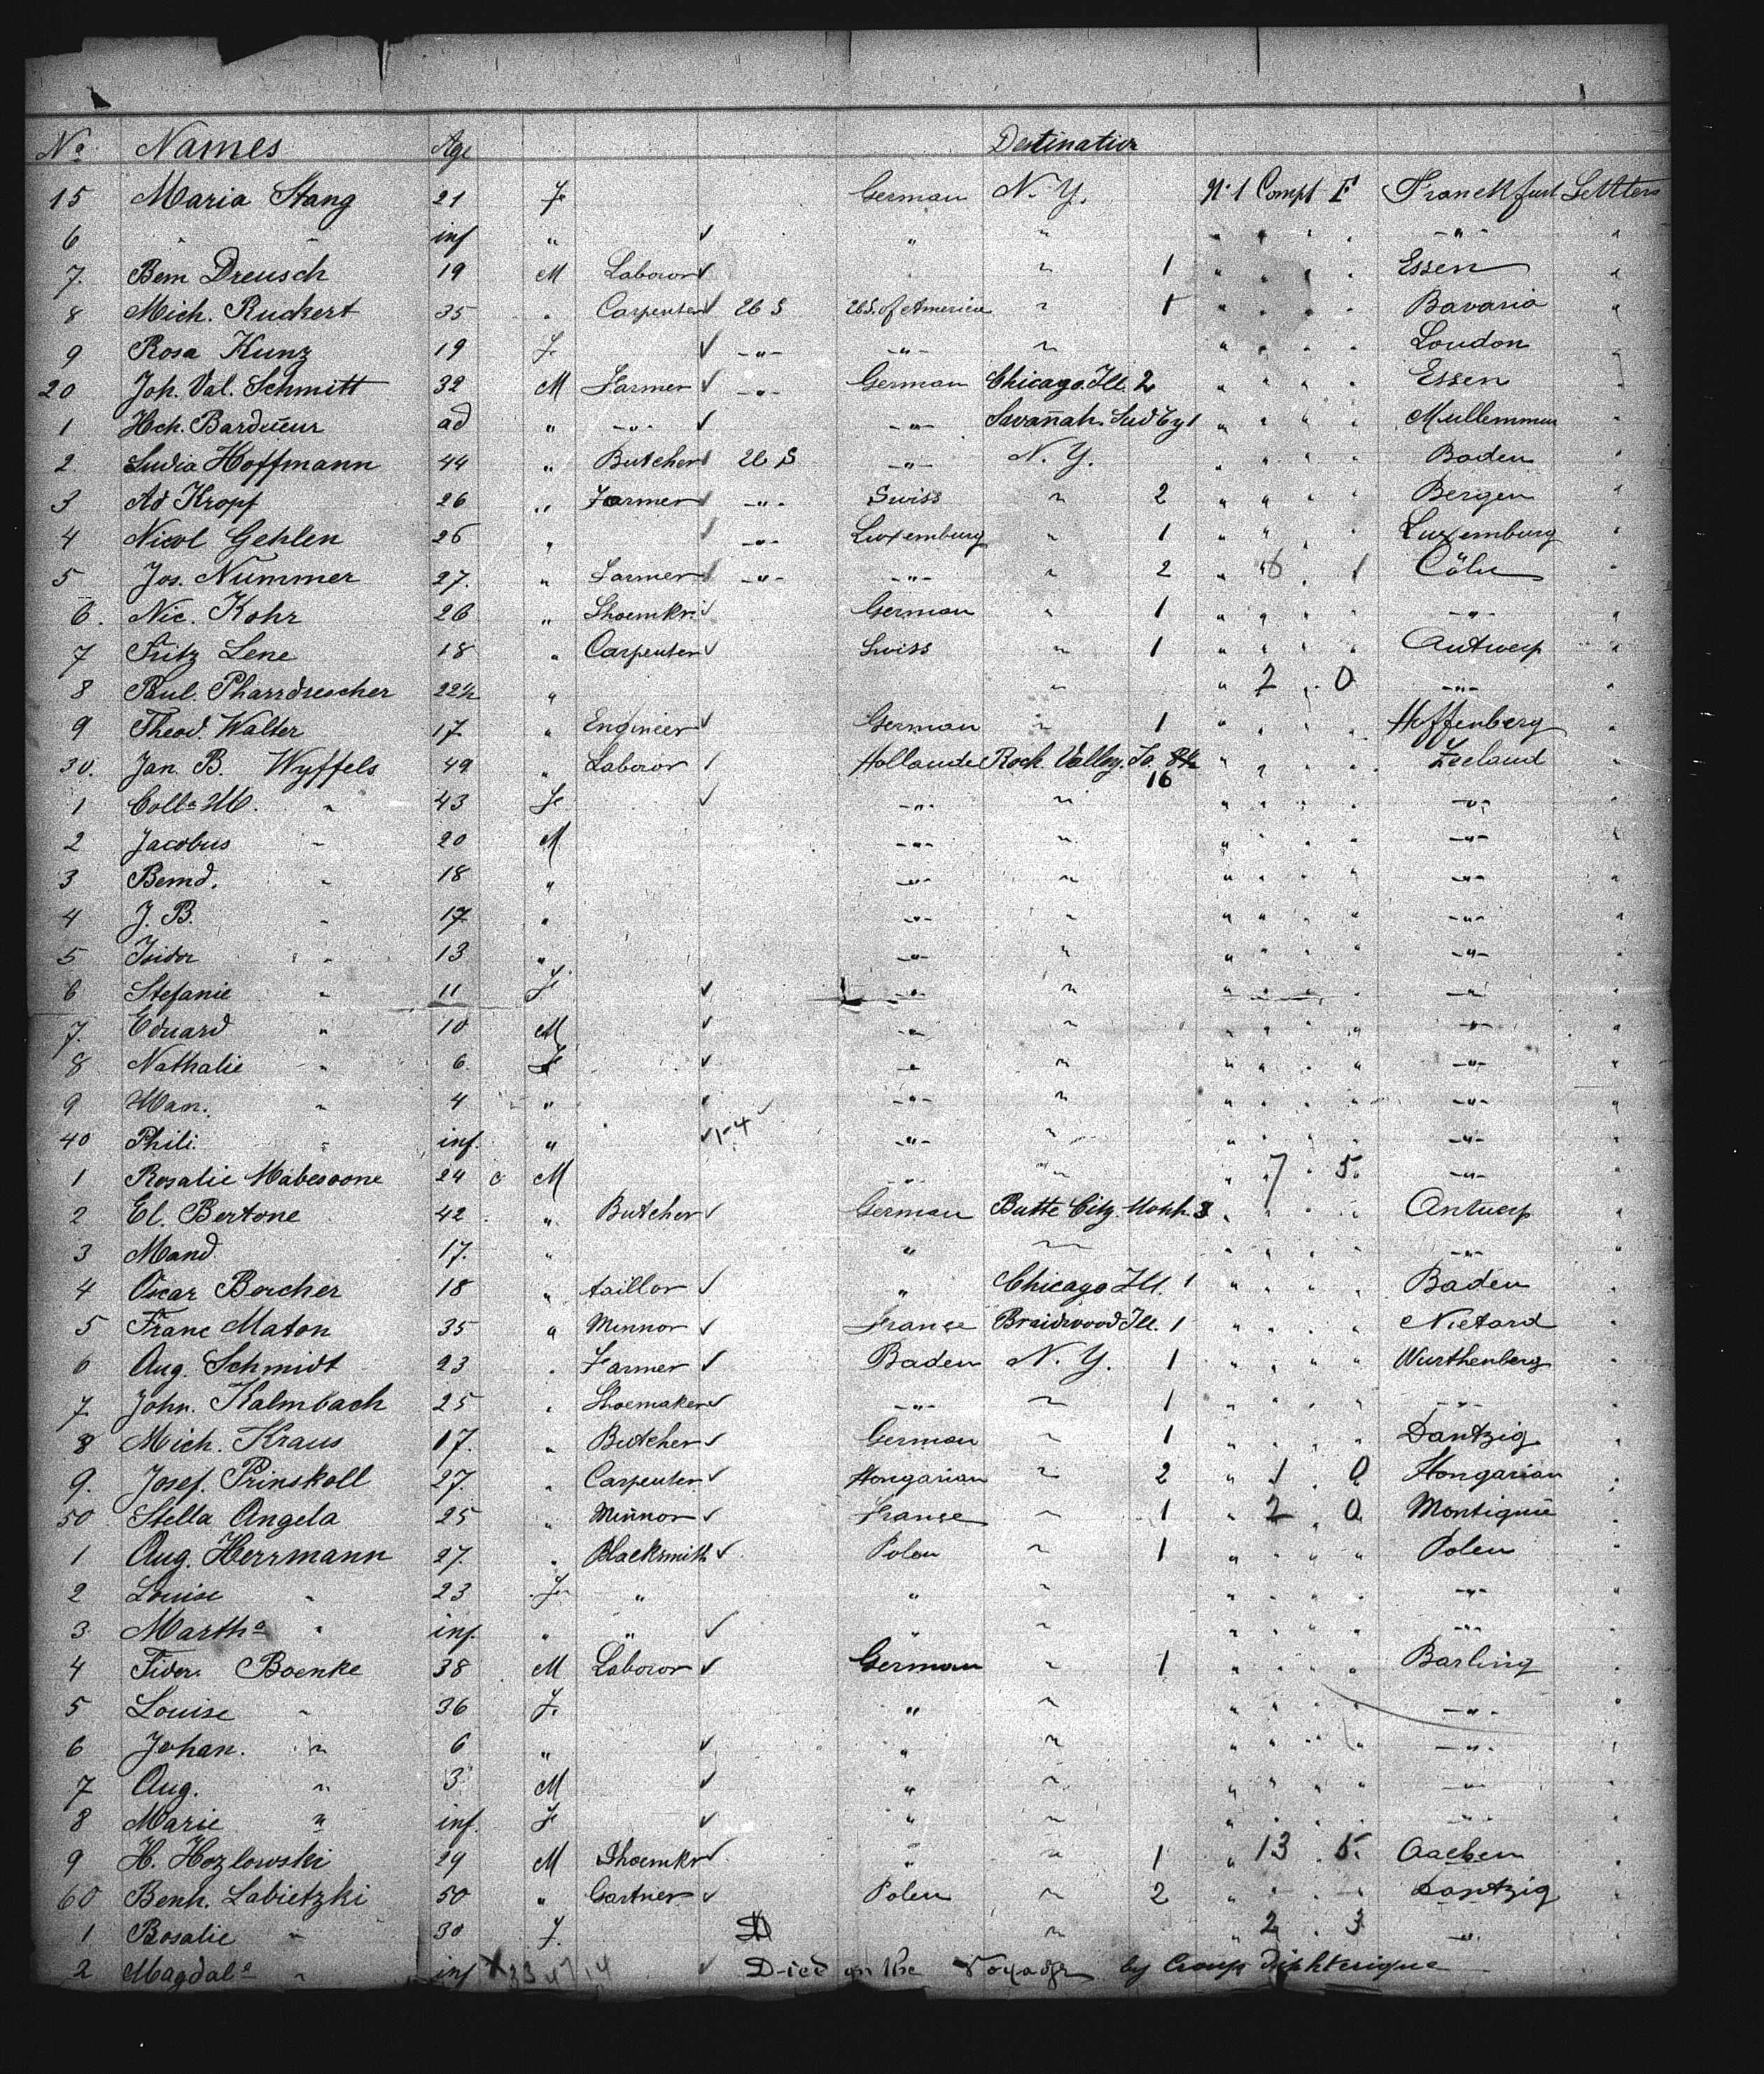 No Names Age Destination
15 Maria Stang 21 Fe German N. Y. No 1 Compt F Franckfurt Settlers
6 " " inf " ✓ " " " " " " -"- "
7. Bem Dreusch 19 M Laboror ✓ " 1 " " " " Essen "
8 Mich. Ruckert 35 " Carpenter ✓ U S U.S. of America " 1 " " " " Bavaria "
9 Rosa Kunz 19 Fe ✓ -"- -"- " " " " " London "
20 Joh. Val. Schmitt 32 M Farmer ✓ -"- German Chicago. Ill. 2 " " " " Essen "
1 Hch. Bardueur ad " -"- ✓ -"- Savannah. 1 " " " " "
2. Ludia Hoffmann 44 " Butcher U S -"- N. Y. " " " " Baden "
3 Ad Kropf 26 " Farmer ✓ -"- Swiss " 2 " " " " Bergen "
4 Nicol Gehlen 26 " ✓ -"- Luxemburg " 1 " " " " Luxemburg "
5 Jos. Nummer 27. " Farmer ✓ -"- -"- " 2 " 6 . 1 Cöln "
6. Nic. Kohr 26 " Shoemkr ✓ German " 1 " " " " -"- "
7 Fritz Lene 18 " Carpenter ✓ Swiss " 1 " " " " Antwerp "
8 Paul. Pharrdrescher 22½ " " " 2 . 0 -"- "
9 Theod. Walter 17 " Engineer ✓ German " 1 " " " " Hoffenberg "
30. Jan. B. Wyffels 49 " Laboror ✓ Hollande Rock. Valley. Io. 8½ " " " " Zeeland "
16
1 Colla M. " 43 Fe ✓ -"- " " " " " -"- "
2 Jacobus " 20 M -"- " " " " " -"- "
3 Bernd. " 18 " -"- " " " " " -"- "
4 J. B. " 17 " -"- " " " " " -"- "
5 Isidor " 13 " -"- " " " " " -"- "
6 Stefanie " 11 Fe ✓ -"- " " " " " -"- "
7. Eduard " 10 M ✓ -"- " " " " " -"- "
8 Nathalie " 6. Fe ✓ -"- " " " " " -"- "
9 Man. " 4 " ✓ -"- " " " " " -"- "
40 Phili. " inf. " ✓ 1-4 -"- " " " " " -"- "
1 Rosalie Mabesoone 24 c M -"- " " 7 . 5. -"- "
2 El. Bertone 42. " Butcher ✓ German Butte City. 3 " " " " Antwerp "
3 Mand. 17. " " " " " " " -"- "
4 Oscar Borcher 18 " taillor ✓ " Chicago Ill. 1 " " " " Baden "
5 Franc Maton 35 " Minnor ✓ France Braidwood Ill. 1 " " " " Nietard "
6 Aug. Schmidt 23 " Farmer ✓ Baden N. Y. 1 " " " " Wurthenberg "
7 John. Kalmbach 25 " Shoemaker ✓ -"- " 1 " " " " -"- "
8 Mich. Kraus 17. " Butcher ✓ German " 1 " " " " Dantzig "
9. Josef. Prinskoll 27. " Carpenter ✓ Hongarian " 2 " 1 . 0 Hongarian "
50 Stella Angela 25 " Minnor ✓ France " 1 " 2 . 0 Montignie "
1 Aug. Herrmann 27. " Blacksmith ✓ Polen " 1 " " " " Polen "
2 Louise " 23 Fe " " " " " " " -"- "
3. Martha " inf. " " ✓ " " " " " " -"- "
4 Boenke 38 M Laboror ✓ German " 1 " " " " Barling "
5 Louise " 36 Fe " " " " " " -"- "
6 Johan. " 6 " ✓ " " " " " " -"- "
7 Aug. " 3. M ✓ " " " " " " -"- "
8 Marie " inf. Fe ✓ " " " " " " -"- "
9 H. Hozlowski 29 M Shoemkr ✓ " " 1 " 13 . 5. Aachen "
60 Benh. Labietzki 50 " Gartner ✓ Polen " 2 " " " " Dantzig "
1 Rosalie " 30 Fe " " 2 . 3 -"- "
2 Magdala " inf X ✓ Died on the Voyage by Croup Diphterique